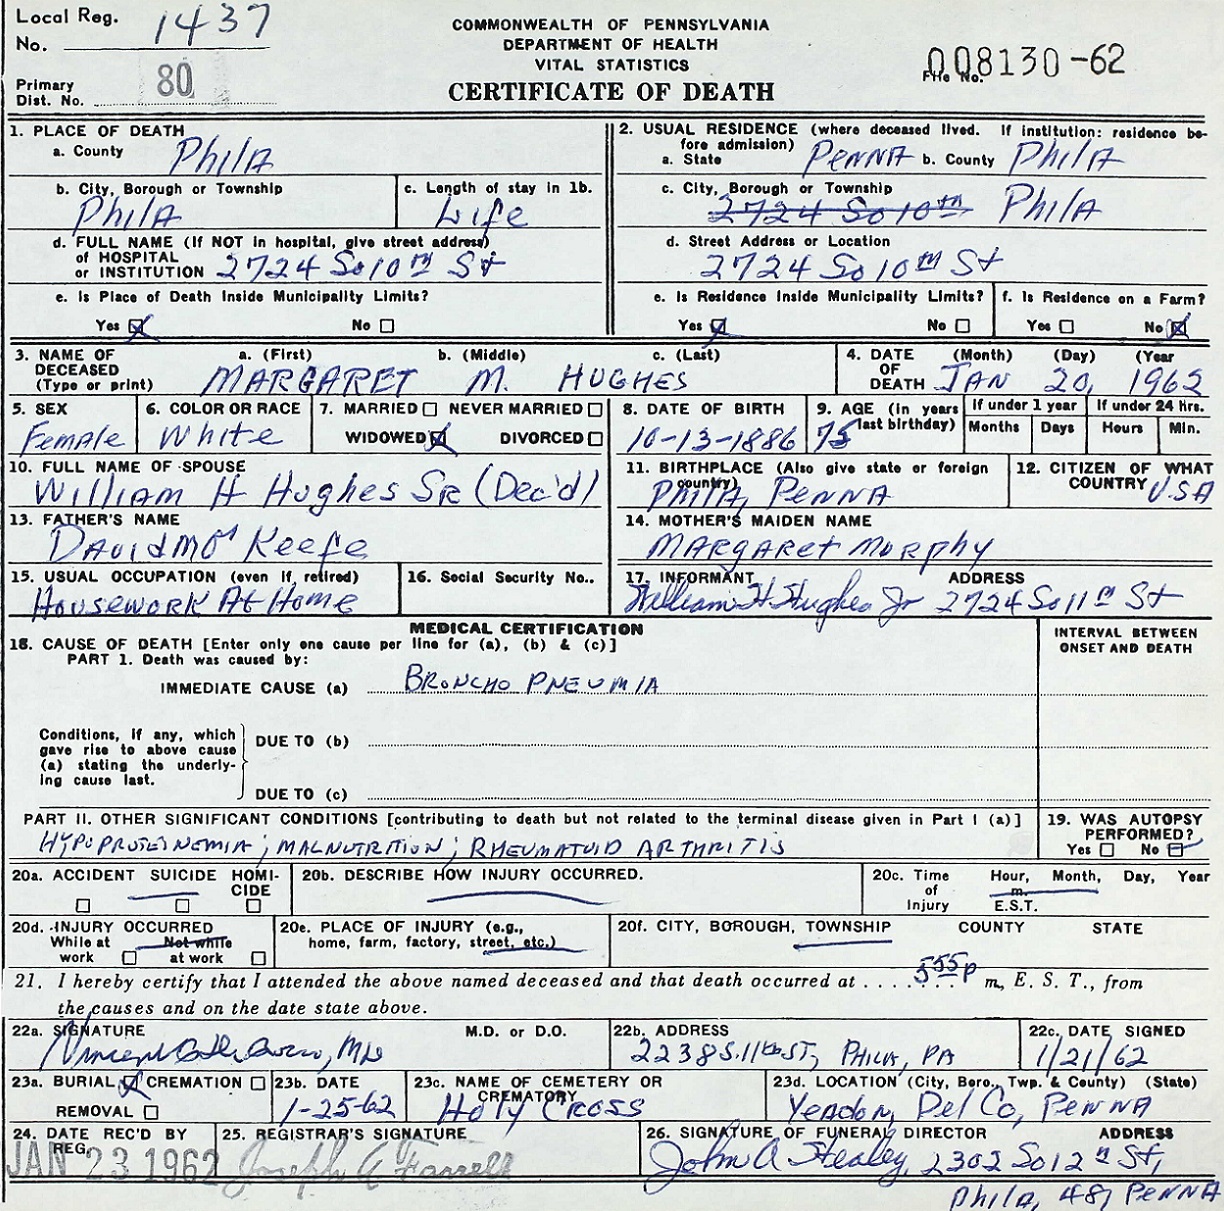 Local Reg. No. 1437
COMMONWEALTH OF PENNSYLVANIA
DEPARTMENT OF HEALTH
VITAL STATISTICS
File No. 008130-62
Primary Dist. No. 80
CERTIFICATE OF DEATH
1. PLACE OF DEATH
a. County PhilA
2. USUAL RESIDENCE (where deceased lived. If institution: residence before admission)
a. State PENNA b. County PhilA
b. City, Borough or Township
PhilA
c. Length of stay in 1b.
Life
c. City, Borough or Township
2724 So 10th PhilA
d. FULL NAME (If NOT in hospital, give street address)
of HOSPITAL
or INSTITUTION 2724 So 10th St
d. Street Address or Location
2724 So 10th St
e. Is Place of Death Inside Municipality Limits?
Yes ☒ No ☐
e. Is Residence Inside Municipality Limits?
Yes ☒ No ☐
f. Is Residence on a Farm?
Yes ☐ No ☒
3. NAME OF DECEASED (Type or print)
a. (First) b. (Middle) c. (Last)
MARGARET M. HUGHES
4. DATE OF DEATH (Month) (Day) (Year
JAN 20, 1962
5. SEX
Female
6. COLOR OR RACE
White
7. MARRIED ☐ NEVER MARRIED ☐
WIDOWED ☒ DIVORCED ☐
8. DATE OF BIRTH
10-13-1886
9. AGE (in years last birthday)
75
If under 1 year
Months Days
If under 24 hrs.
Hours Min.
10. FULL NAME OF SPOUSE
William H Hughes Sr (Dec'd)
11. BIRTHPLACE (Also give state or foreign country)
PhilA, PENNA
12. CITIZEN OF WHAT COUNTRY
USA
13. FATHER'S NAME
David M O'Keefe
14. MOTHER'S MAIDEN NAME
MARGAREt MURPhy
15. USUAL OCCUPATION (even if retired)
HOUSEWORK At Home
16. Social Security No..
17. INFORMANT ADDRESS
William H Hughes Jr 2724 So 11th St
MEDICAL CERTIFICATION
18. CAUSE OF DEATH [Enter only one cause per line for (a), (b) & (c)]
PART 1. Death was caused by:
INTERVAL BETWEEN
ONSET AND DEATH
IMMEDIATE CAUSE (a) BRONCHO PNEUMIA
Conditions, if any, which
gave rise to above cause
(a) stating the underly-
ing cause last.
DUE TO (b)
DUE TO (c)
PART II. OTHER SIGNIFICANT CONDITIONS [contributing to death but not related to the terminal disease given in Part I (a)]
HYPOPROTEINEMIA; MALNUTRITION; RHEUMATOID ARTHRITIS
19. WAS AUTOPSY
PERFORMED?
Yes ☐ No ☑
20a. ACCIDENT SUICIDE HOMI-
CIDE
20b. DESCRIBE HOW INJURY OCCURRED.
20c. Time of Injury Hour, Month, Day, Year
m.
E.S.T.
20d. INJURY OCCURRED
While at work ☐ Not while at work ☐
20e. PLACE OF INJURY (e.g.,
home, farm, factory, street, etc.)
20f. CITY, BOROUGH, TOWNSHIP COUNTY STATE
21. I hereby certify that I attended the above named deceased and that death occurred at 5 55 p m., E. S. T., from
the causes and on the date state above.
22a. SIGNATURE M.D. or D.O.
Vincent MD
22b. ADDRESS
2238 S. 11th ST, PHILA, PA
22c. DATE SIGNED
1/21/62
23a. BURIAL ☒ CREMATION ☐
REMOVAL ☐
23b. DATE
1-25-62
23c. NAME OF CEMETERY OR CREMATORY
Holy CROSS
23d. LOCATION (City, Boro., Twp. & County) (State)
Yeadon, Del Co, PENNA
24. DATE REC'D BY REG.
JAN 23 1962
25. REGISTRAR'S SIGNATURE
Joseph A Farrell
26. SIGNATURE OF FUNERAL DIRECTOR ADDRESS
John A Healey, 2302 So 12th St,
Phila, 48, PENNA